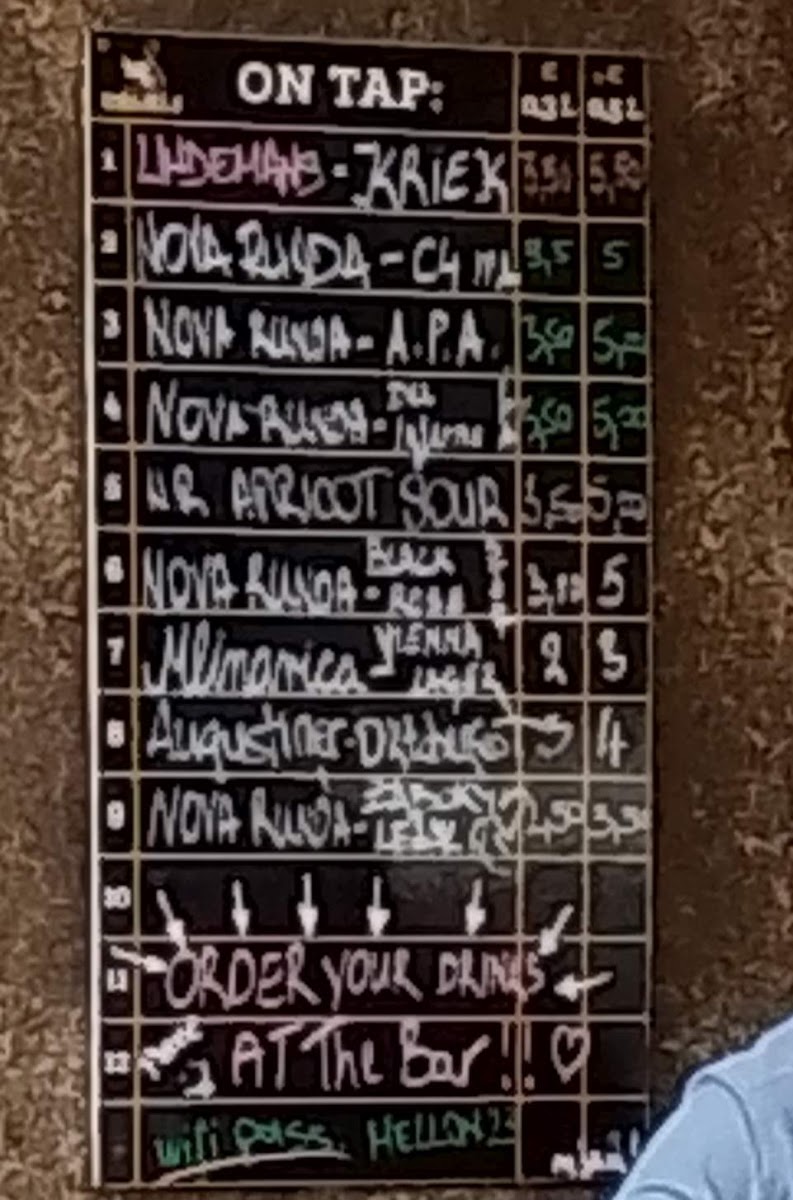 ON TAP:
€ 0,3 L
€ 0,5 L
1 LINDEMANS - KRIEK 3,50 5,50
2 NOVA RUNDA - C4 3,5 5
3 NOVA RUNDA - A.P.A. 3,50 5,00
4 NOVA RUNDA - 3,50 5,00
5 N.R. APRICOT SOUR 3,50 5,00
6 NOVA RUNDA - BLACK 5
7 Mlinarica VIENNA LAGER 2 3
8 AUGUSTINER 3 4
9 NOVA RUNDA - 2,50 3,50
10
11 ORDER YOUR DRINKS
12 AT The Bar!! ♡
wifi pass.